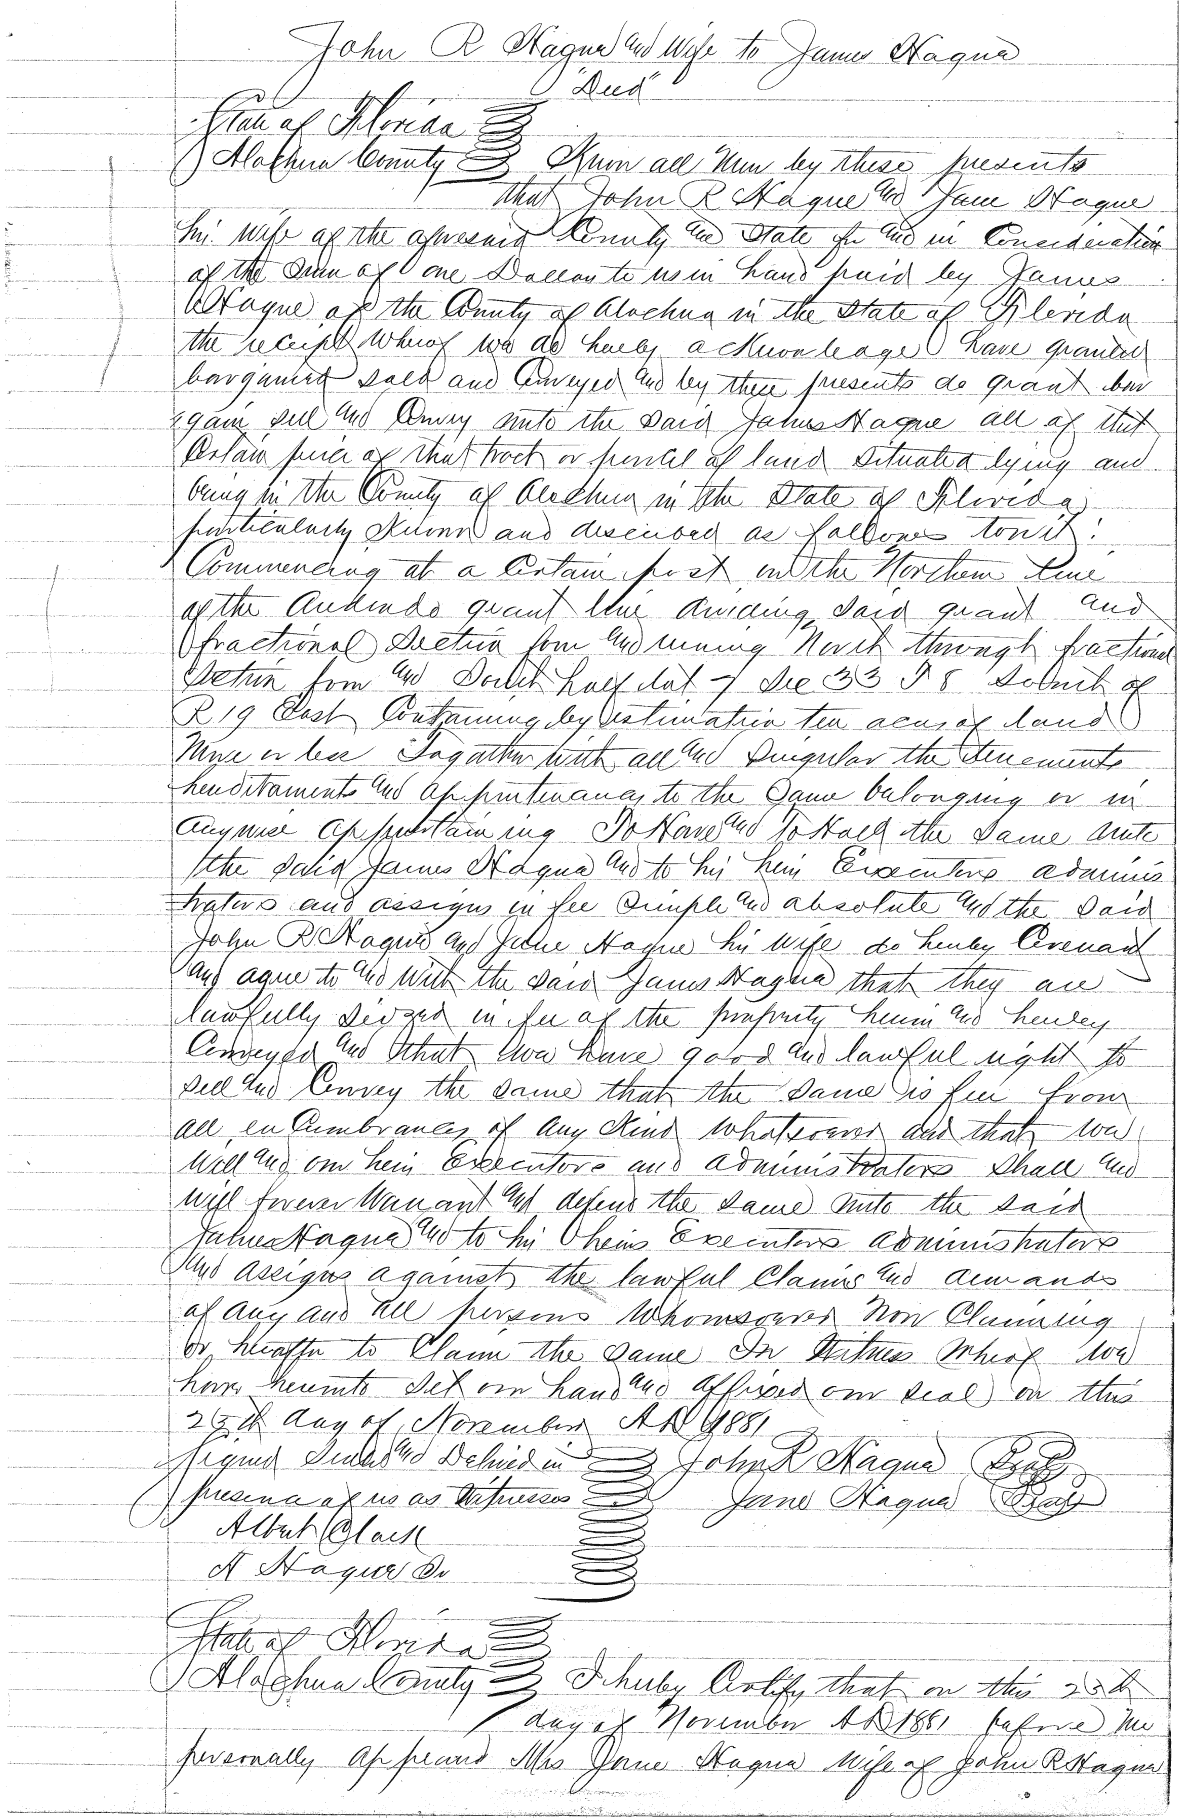 John R Hague and Wife to James Hague
"Deed"
State of Florida
Alachua County Know all Men by these presents
that John R Hague and Jane Hague
his wife of the aforesaid County and State for and in Consideration
of the Sum of one Dollar to us in hand paid by James
Hague of the County of Alachua in the State of Florida
the receipt whereof we do hereby acknowledge have granted
bargained sold and Conveyed and by these presents do grant bar
gain sell and Convey unto the said James Hague all of that
Certain piece of that tract or parcel of land situated lying and
being in the County of Alachua in the State of Florida
particularly Known and described as follows towit:
Commencing at a Certain post in the Northern line
of the grant line dividing said grant and
fractional Section four and running North through fractional
Section four and South half lot 7 Sec 33 T 8 South of
R 19 East Containing by estimation ten acres of land
More or less Together with all and Singular the tenements
hereditaments and appurtenances to the Same belonging or in
anywise appertaining To Have and To Hold the Same unto
the said James Hague and to his heirs Executors adminis
trators and assigns in fee Simple and absolute and the said
John R Hague and Jane Hague his wife do hereby Covenant
and agree to and with the said James Hague that they are
lawfully siezed in fee of the property herein and hereby
Conveyed and that we have good and lawful right to
sell and Convey the same that the same is free from
all encumbrances of any Kind whatsoever and that we
will and our heirs Executors and administrators shall and
will forever Warrant and defend the same unto the said
James Hague and to his heirs Executors administrators
and assigns against the lawful Claims and demands
of any and all persons whomsoever Now Claiming
or hereafter to Claim the same In Witness whereof we
have hereunto set our hand and affixed our seal on this
25th day of November AD 1881
Signed Sealed and Delivered in John R Hague Seal
presence of us as Witnesses Jane Hague Seal
Albert Clark
A Hague Sr
State of Florida
Alachua County I hereby Certify that on this 25th
day of November AD 1881 before me
personally appeared Mrs Jane Hague Wife of John R Hague